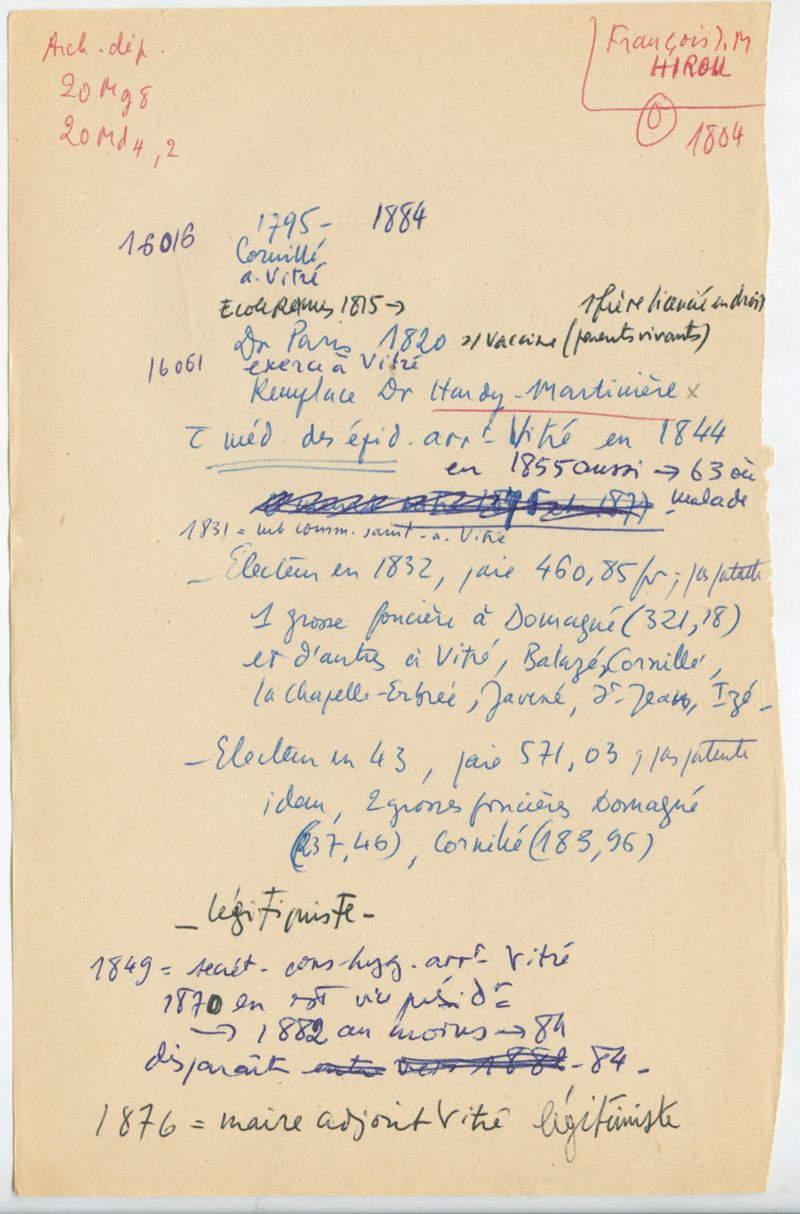 Arch. dép.
20 Mg 8
20 Md 4, 2
François J. M
HIROU
0
1804
1795 - 1884
16016
Cornillé
a. Vitré
Ecole Rennes 1815 →
1 frère licencié en droit
Dr Paris 1820 s/ vaccine (parents vivants)
16061 exerce à Vitré
Remplace Dr Hardy-Martinière x
méd. des épid. arrt Vitré en 1844
en 1855 aussi → 63 où
malade
1831 = mb comm. sanit. a. Vitré
- Electeur en 1832, paie 460,85 fr ; pas patente
1 grosse foncière à Domagné (321,18)
et d'autres à Vitré, Balazé, Cornillé,
la Chapelle-Erbrée, Javené, St-Jean, Izé -
- Electeur en 43, paie 571,03 ; pas patente
idem, 2 grosses foncières Domagné
(237,46), Cornillé (183,96)
- légitimiste -
1849 = secrét. cons. hyg. arrt Vitré
1870 en est vice présidt
→ 1882 au moins → 84
disparaît - 84 -
1876 = maire adjoint Vitré légitimiste